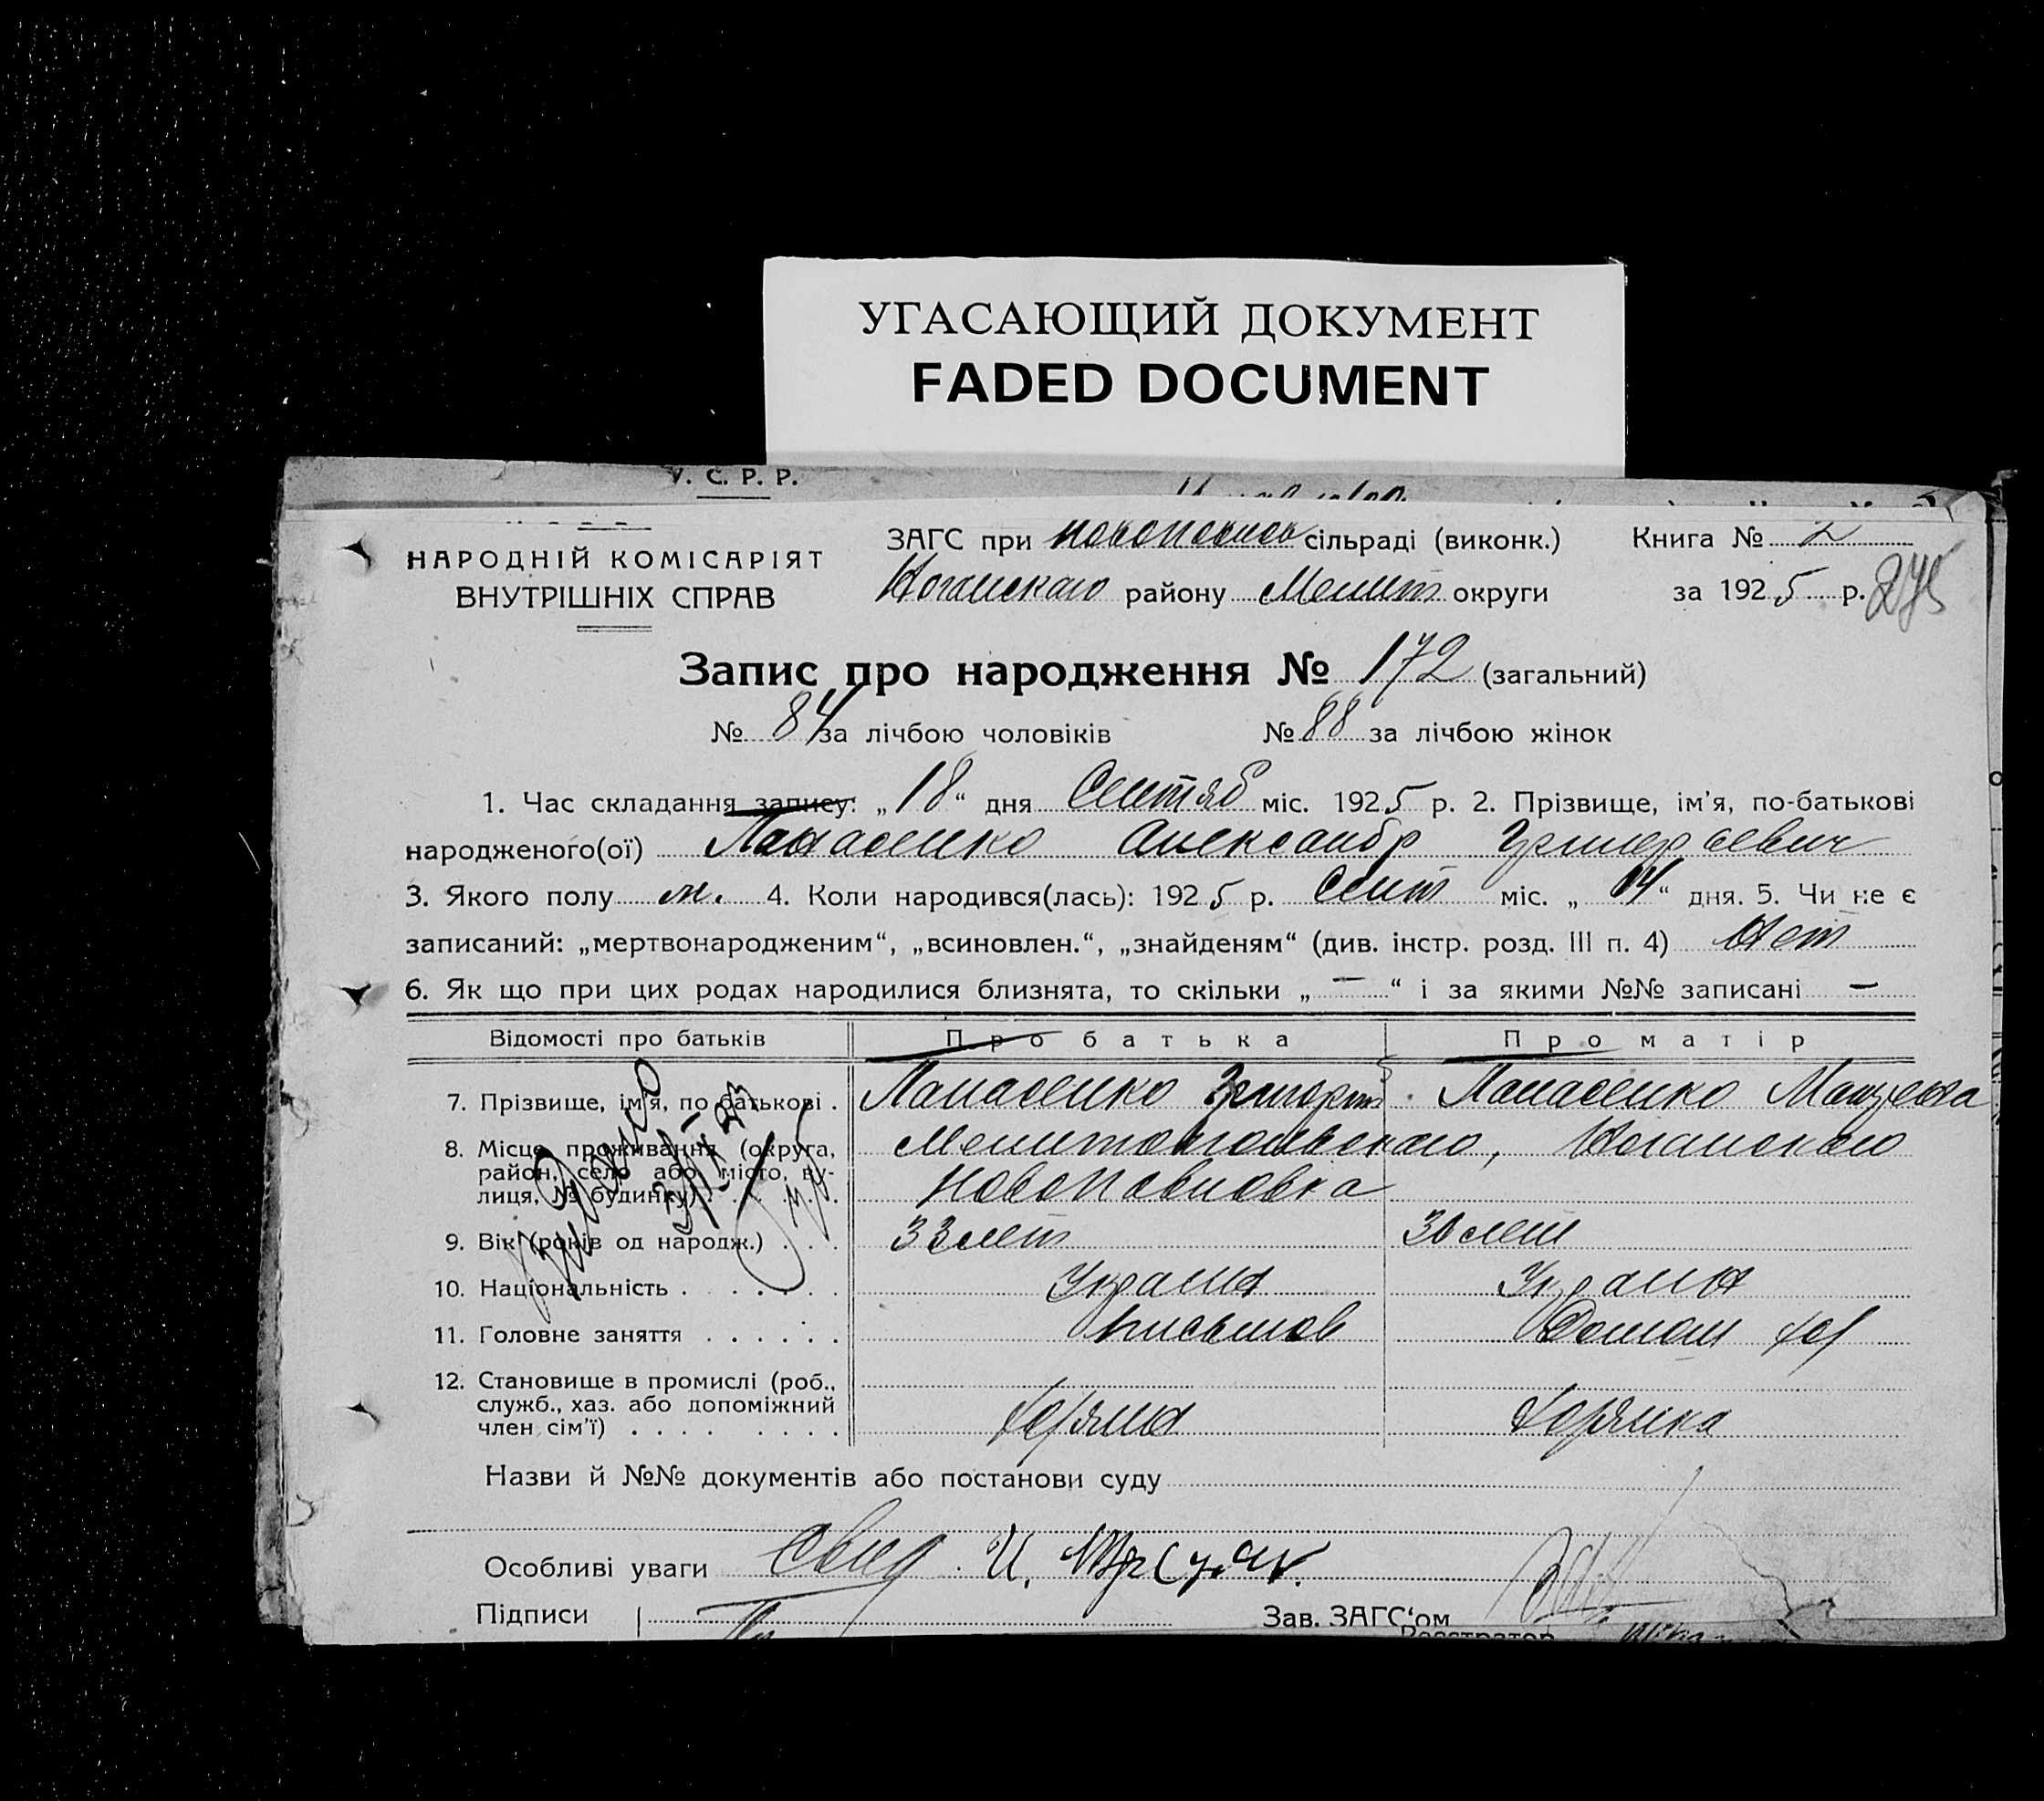 УГАСАЮЩИЙ ДОКУМЕНТ
FADED DOCUMENT
У. С. Р. Р.
НАРОДНІЙ КОМІСАРІЯТ
ВНУТРІШНІХ СПРАВ
ЗАГС при новопавлов сільраді (виконк.) Книга № 2
Ногайскаго району Мелит округи за 1925 р. 275
Запис про народження № 172 (загальний)
№ 84 за лічбою чоловіків № 88 за лічбою жінок
1. Час складання запису: „18“ дня Сентяб міс. 1925 р. 2. Прізвище, ім'я, по-батькові
народженого(ої) Панасенко Александр Григорьевич
3. Якого полу м. 4. Коли народився(лась): 1925 р. Сент міс. „14“ дня. 5. Чи не є
записаний: „мертвонародженим“, „всиновлен.“, „знайденям“ (див. інстр. розд. III п. 4) Нет
6. Як що при цих родах народилися близнята, то скільки „ — “ і за якими №№ записані —
Відомості про батьків Про батька Про матір
7. Прізвище, ім'я, по батькові . Панасенко Григорий Панасенко
8. Місце проживання (округа, Мелитопольскаго, Ногайскаго
район, село або місто, ву-
лиця, № будинку) . . . . . . Новопавловка
9. Вік (років од народж.) . . 33 лет 30 лет
10. Національність . . . . . . Украин Украин
11. Головне заняття . . . . . . Домаш хоз
12. Становище в промислі (роб.,
служб., хаз. або допоміжний
член сім'ї) . . . . . . . .
Назви й №№ документів або постанови суду
Особливі уваги Свид. И.
Підписи Зав. ЗАГС'ом
Реєстратор